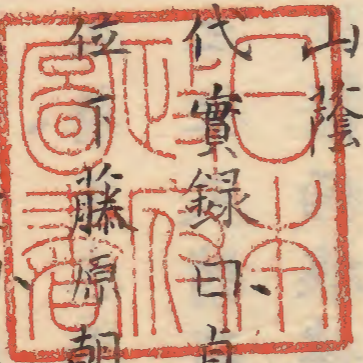 山陰
代實録曰、貞
位下藤原朝
日本
政府
圖書